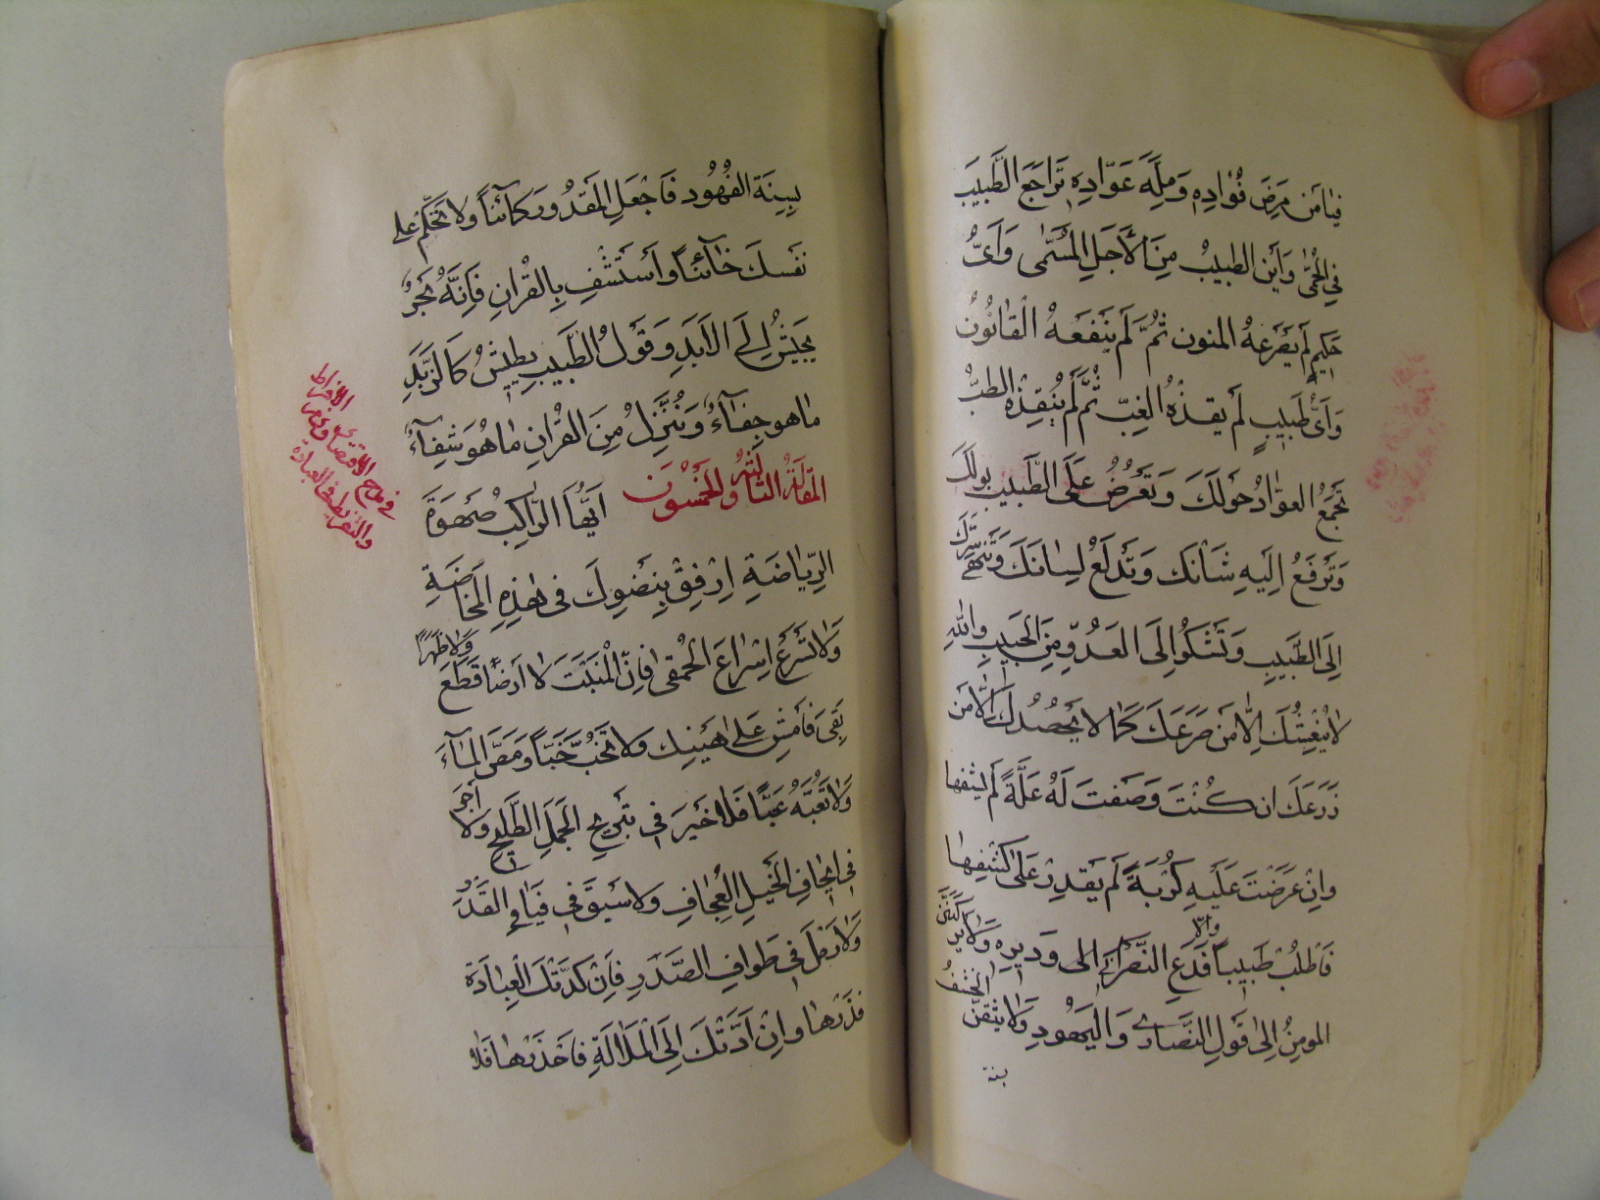 فيا من مرض فؤاده ومله عواده تراجع الطبيب
في الحمى وأين الطبيب من الأجل المسمى وأي
حكيم لم يفزعه المنون ثم لم ينفعه القانون
وأي طبيب لم يقذه الغب ثم لم ينقذه الطب
تجمع العواد حولك وتعرض على الطبيب بولك
وترفع إليه شأنك وتدلع لسانك وتنهي سرك
إلى الطبيب وتشكو إلى العدو من الحبيب والله
لا يغيثك إلا من صرعك كما لا يحصدك إلا من
زرعك ان كنت وصفت له علة لم يشفها
وان عرضت عليه كربة لم يقدر على كشفها
فاطلب طبيبا والا فدع النصراني الى وديره ولا يركنن
المومن إلى قول النصارى واليهود ولا يثقن الحنيف
بينة
ببينة الفهود فاجعل المقدور كائنا ولا تحكم على
نفسك خائنا واستشف بالقران فإنه بحر
يجيش إلى الأبد وقول الطبيب يطيش كالزبد
ما هو جفاء وننزل من القران ما هو شفاء
المقالة الثالثة والخمسون أيها الراكب صهوة
الرياضة ارفق بنضوك في هذه المخاضة
ولا تسرع إسراع الحمقى فان المنبت لا أرضا قطع ولا ظهرا
بقى فامش على هينك ولا تخب خببا ومص الماء
ولا تعبه عبا فلا خير في تبريح الجمل الطليح ولا أجر
في إيجاف الخيل العجاف ولا سبق في فيافي القدر
ولا رمل في طواف الصدر فإن كدتك العبادة
فذرها وإن أدتك إلى الملالة فاحذرها فلا
في مدح الاقتصاد وعدم الافراط
والتفريط في العبادة